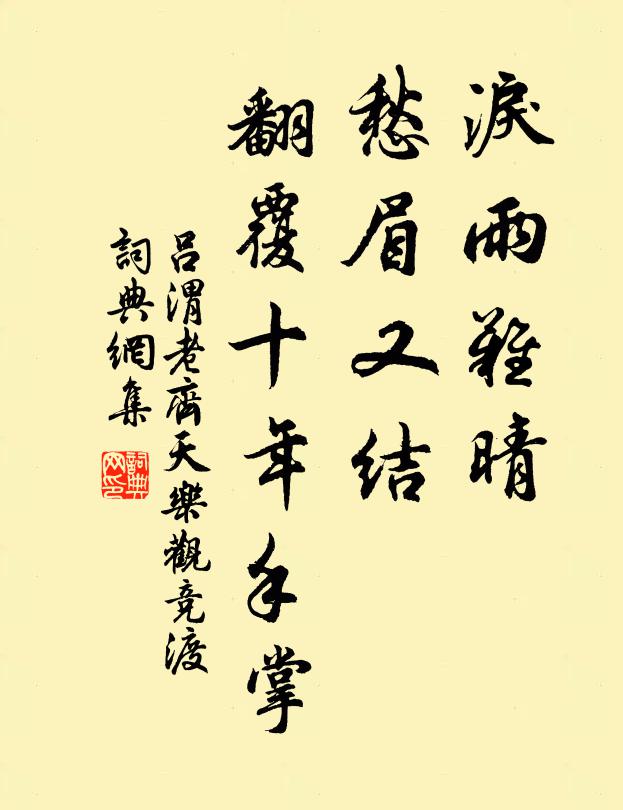 淚雨難晴
愁眉又結
翻覆十年手掌
吕渭老齊天樂觀競渡
詞典網集
詞典
网印